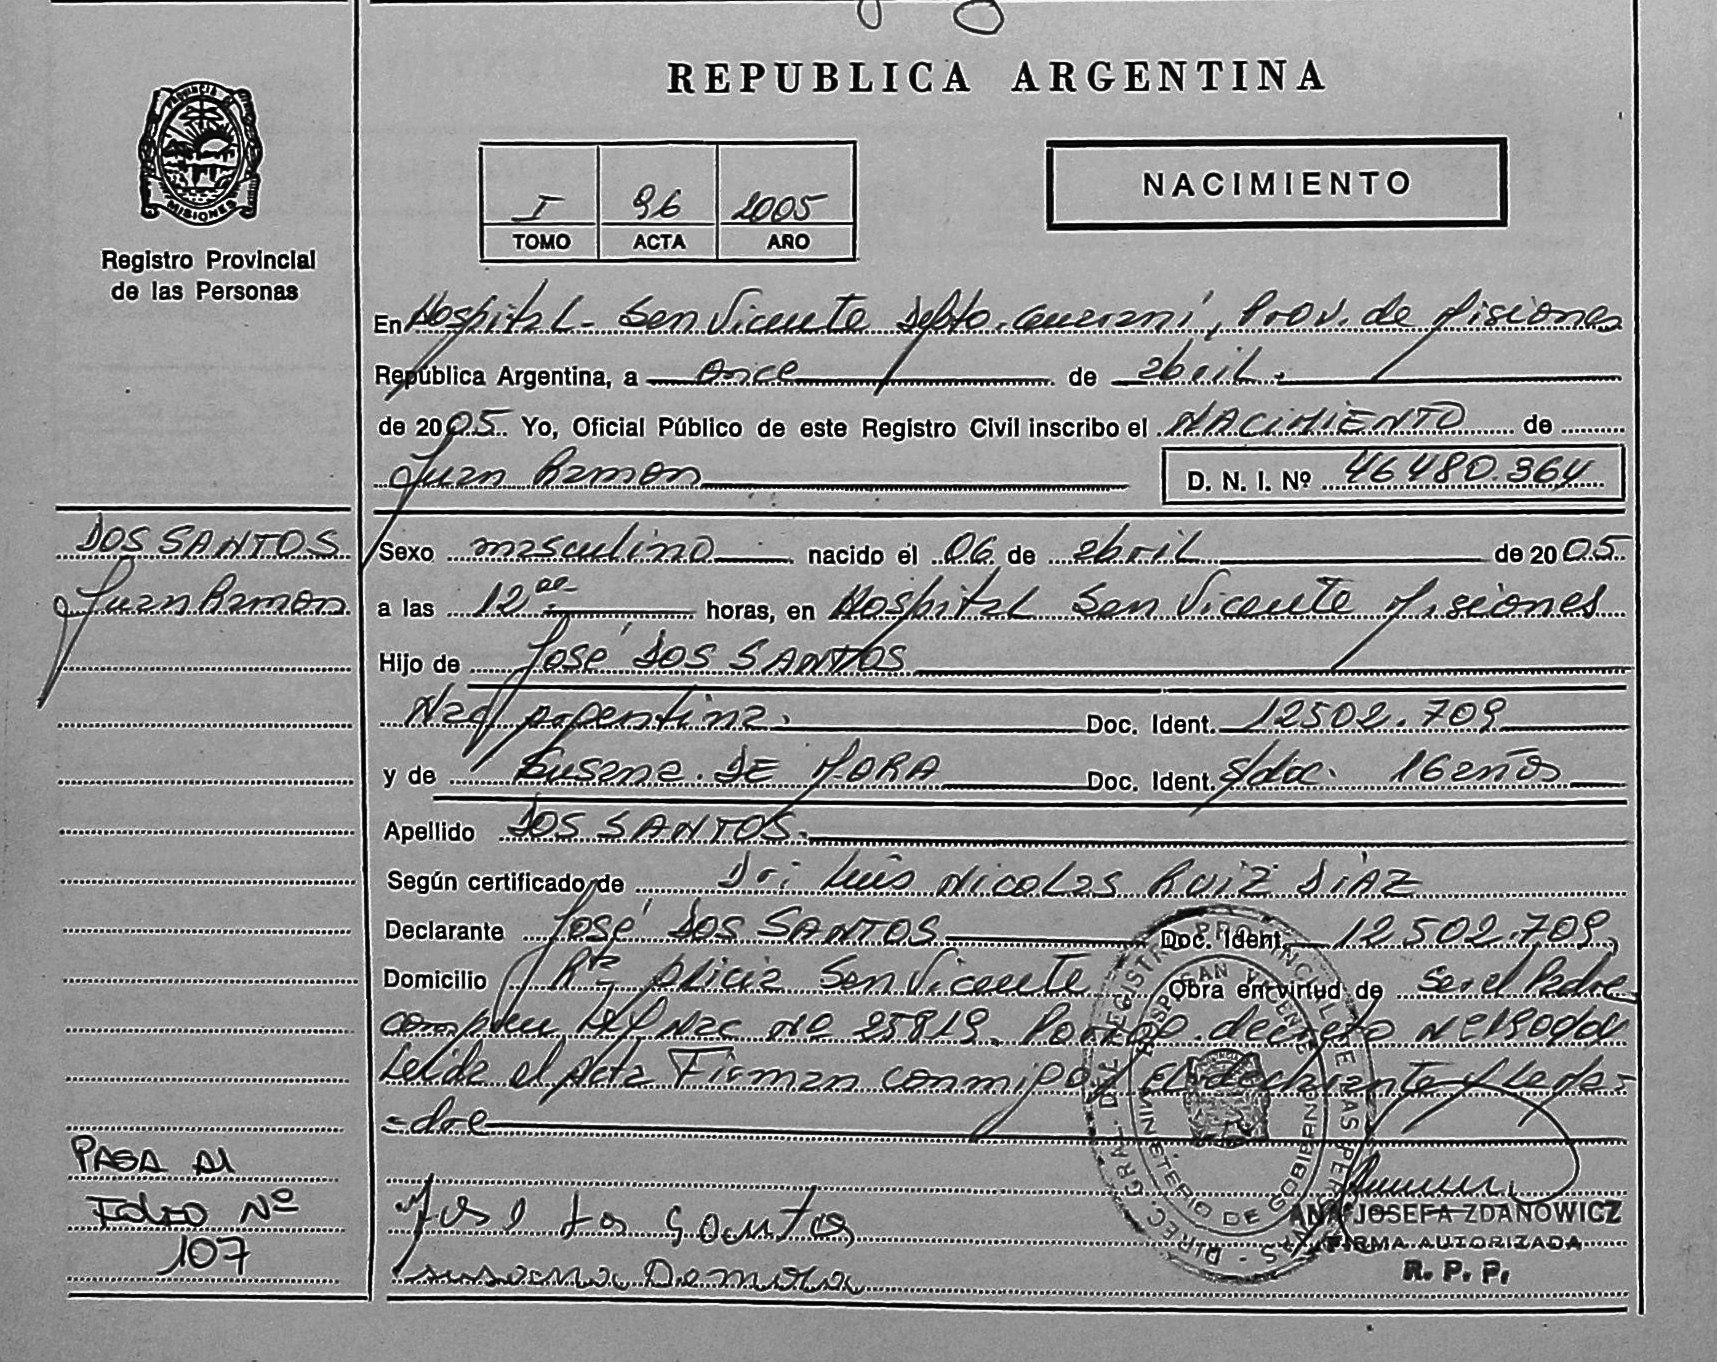 REPUBLICA ARGENTINA
PROVINCIA DE MISIONES
Registro Provincial
de las Personas
I 96 2005
TOMO ACTA AÑO
NACIMIENTO
En Hospital - San Vicente Dpto. Guarani, Prov. de Misiones
República Argentina, a once de abril.
de 2005 Yo, Oficial Público de este Registro Civil inscribo el NACIMIENTO de
Juan Ramon D. N. I. Nº 46480.364
DOS SANTOS
Juan Ramon
Sexo masculino nacido el 06 de abril de 2005
a las 12 horas, en Hospital San Vicente Misiones
Hijo de José DOS SANTOS
Nac Argentina. Doc. Ident. 12502.709
y de Susana. DE MORA Doc. Ident. s/doc. 16 años
Apellido DOS SANTOS.
Según certificado de Dr: Luis Nicolas Ruiz Diaz
Declarante José DOS SANTOS Doc. Ident. 12502.709,
Domicilio Rta Alicia San Vicente Obra en virtud de Ser el Padre
Nac Nº 25819. decreto Nº
Leida el Acta Firman conmigo el declarante y la ma-
-dre
PASA Al
Folio Nº
107
Jose dos Santos
susana Demora
DIREC. GRAL. DEL REGISTRO PROVINCIAL DE LAS PERSONAS
HOSP. SAN VICENTE
MINISTERIO DE GOBIERNO
ANA JOSEFA ZDANOWICZ
FIRMA AUTORIZADA
R. P. P.